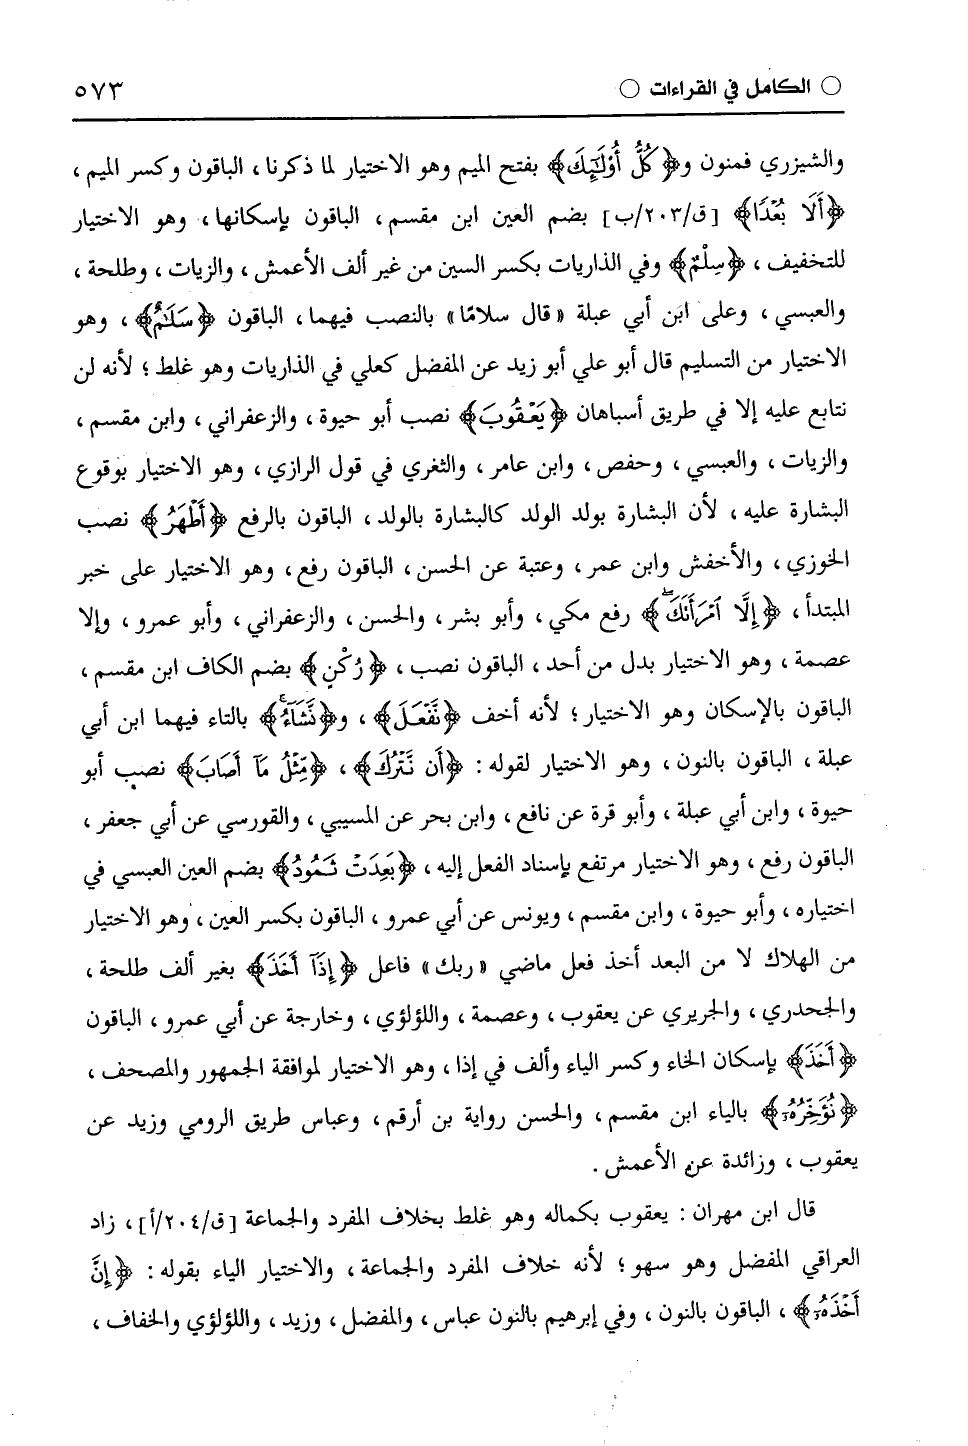 ○ الكامل في القراءات ○ ٥٧٣
والشيزري فمنون و﴿كُلُّ أُوْلَٰٓئِكَ﴾ بفتح الميم وهو الاختيار لما ذكرنا، الباقون وكسر الميم،
﴿أَلَا بُعْدًا﴾ [ق/٢٠٣/ب] بضم العين ابن مقسم، الباقون بإسكانها، وهو الاختيار
للتخفيف، ﴿سِلْمٌ﴾ وفي الذاريات بكسر السين من غير ألف الأعمش، والزيات، وطلحة،
والعبسي، وعلى ابن أبي عبلة «قال سلامًا» بالنصب فيهما، الباقون ﴿سَلَٰمٌ﴾، وهو
الاختيار من التسليم قال أبو علي أبو زيد عن المفضل كعلي في الذاريات وهو غلط؛ لأنه لن
نتابع عليه إلا في طريق أسباهان ﴿يَعْقُوبَ﴾ نصب أبو حيوة، والزعفراني، وابن مقسم،
والزيات، والعبسي، وحفص، وابن عامر، والثغري في قول الرازي، وهو الاختيار بوقوع
البشارة عليه، لأن البشارة بولد الولد كالبشارة بالولد، الباقون بالرفع ﴿أَطْهَرُ﴾ نصب
الخوزي، والأخفش وابن عمر، وعتبة عن الحسن، الباقون رفع، وهو الاختيار على خبر
المبتدأ، ﴿إِلَّا ٱمْرَأَتَكَ﴾ رفع مكي، وأبو بشر، والحسن، والزعفراني، وأبو عمرو، وإلا
عصمة، وهو الاختيار بدل من أحد، الباقون نصب، ﴿رُكْنٍ﴾ بضم الكاف ابن مقسم،
الباقون بالإسكان وهو الاختيار؛ لأنه أخف ﴿نَّفْعَلَ﴾، و﴿نَشَٰٓؤُاْ﴾ بالتاء فيهما ابن أبي
عبلة، الباقون بالنون، وهو الاختيار لقوله: ﴿أَن نَّتْرُكَ﴾، ﴿مِّثْلُ مَآ أَصَابَ﴾ نصب أبو
حيوة، وابن أبي عبلة، وأبو قرة عن نافع، وابن بحر عن المسيبي، والقورسي عن أبي جعفر،
الباقون رفع، وهو الاختيار مرتفع بإسناد الفعل إليه، ﴿بَعِدَتْ ثَمُودُ﴾ بضم العين العبسي في
اختياره، وأبو حيوة، وابن مقسم، ويونس عن أبي عمرو، الباقون بكسر العين، وهو الاختيار
من الهلاك لا من البعد أخذ فعل ماضي «ربك» فاعل ﴿إِذَآ أَخَذَ﴾ بغير ألف طلحة،
والجحدري، والجريري عن يعقوب، وعصمة، واللؤلؤي، وخارجة عن أبي عمرو، الباقون
﴿أَخْذَ﴾ بإسكان الخاء وكسر الياء وألف في إذا، وهو الاختيار لموافقة الجمهور والمصحف،
﴿نُؤَخِّرُهُۥٓ﴾ بالياء ابن مقسم، والحسن رواية بن أرقم، وعباس طريق الرومي وزيد عن
يعقوب، وزائدة عن الأعمش.
قال ابن مهران: يعقوب بكماله وهو غلط بخلاف المفرد والجماعة [ق/٢٠٤/أ]، زاد
العراقي المفضل وهو سهو؛ لأنه خلاف المفرد والجماعة، والاختيار الياء بقوله: ﴿إِنَّ
أَخْذَهُۥٓ﴾، الباقون بالنون، وفي إبرهيم بالنون عباس، والمفضل، وزيد، واللؤلؤي والخفاف،